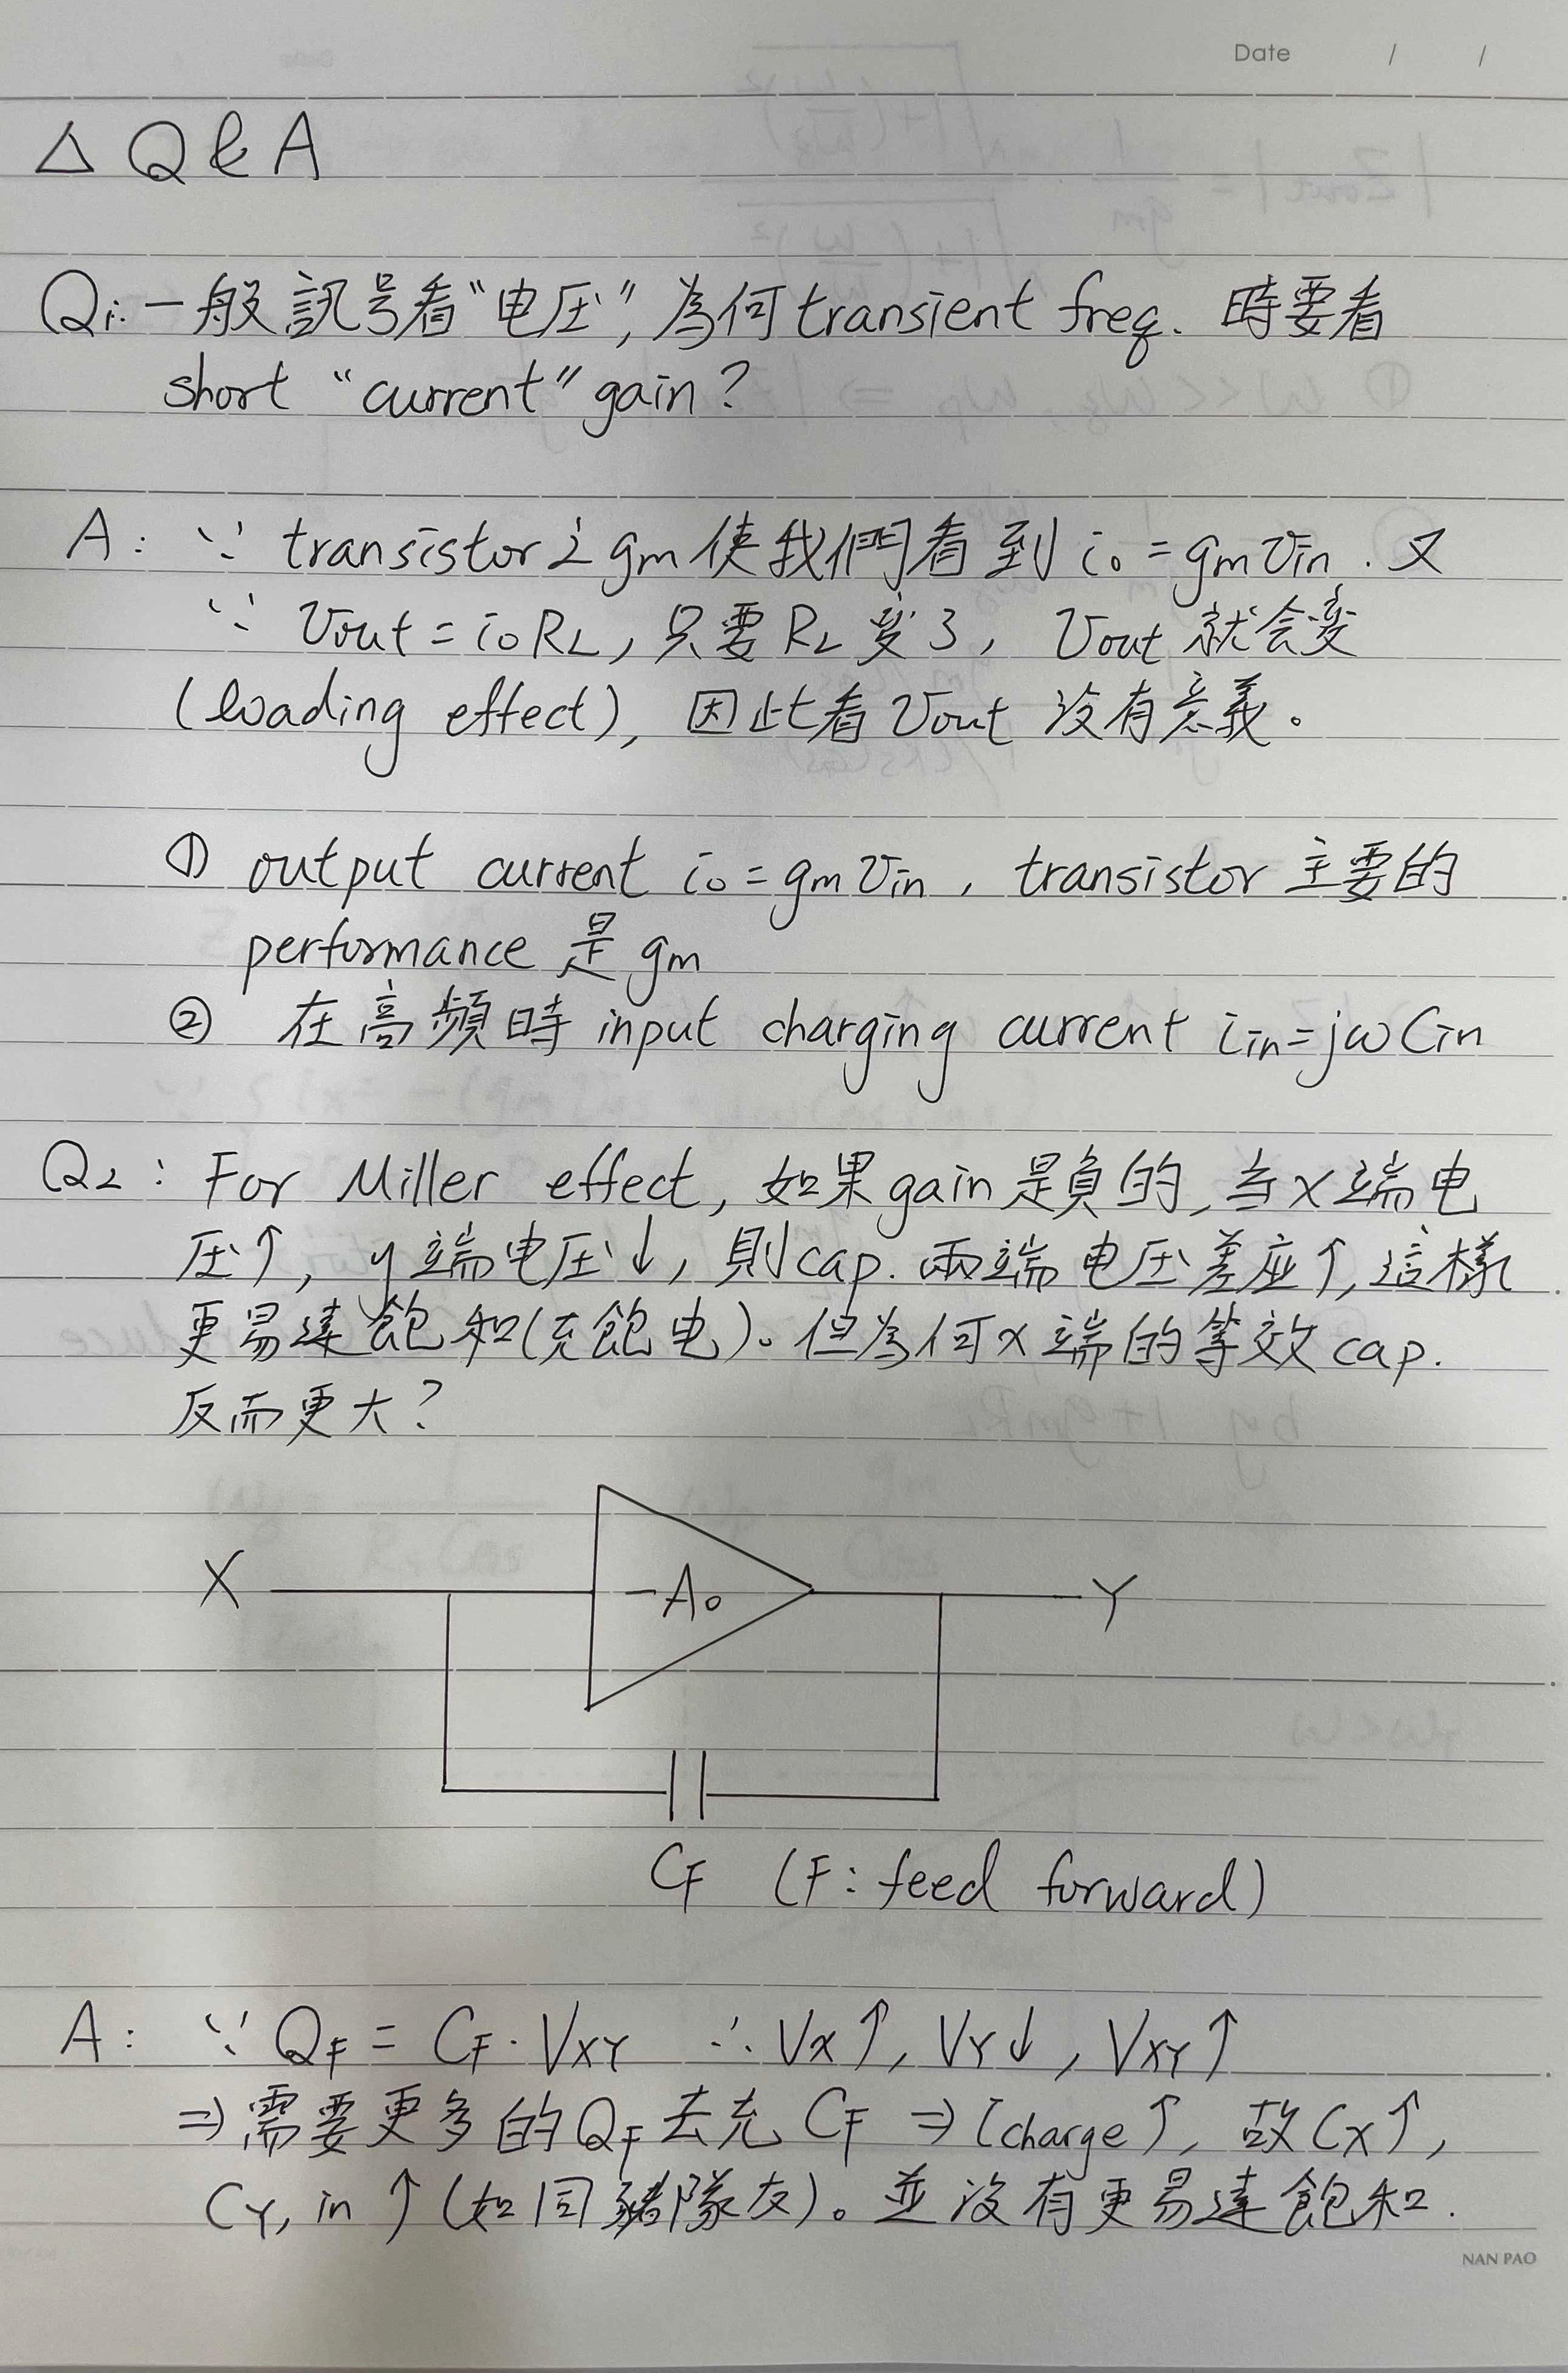 Date / /
△ Q & A
Q1: 一般訊号看“电压”, 為何 transient freq. 時要看
short “current” gain?
A: ∵ transistor 之 gm 使我們看到 io = gm vin . 又
∵ vout = io RL, 只要 RL 变了, vout 就会变
(loading effect), 因此看 vout 沒有意義。
① output current io = gm vin , transistor 主要的
performance 是 gm
② 在高頻時 input charging current iin = jω Cin
Q2: For Miller effect, 如果 gain 是負的, 当 X 端电
压↑, y 端电压↓, 則 cap. 兩端电压差应↑, 這樣
更易達飽和(充飽电)。但為何 X 端的等效 cap.
反而更大?
X -A0 Y
CF (F: feed forward)
A: ∵ QF = CF · VXY ∴ VX↑, VY↓, VXY↑
⇒ 需要更多的 QF 去充 CF ⇒ Icharge↑, 故 CX↑,
CY, in ↑ (如同豬隊友)。並沒有更易達飽和.
NAN PAO